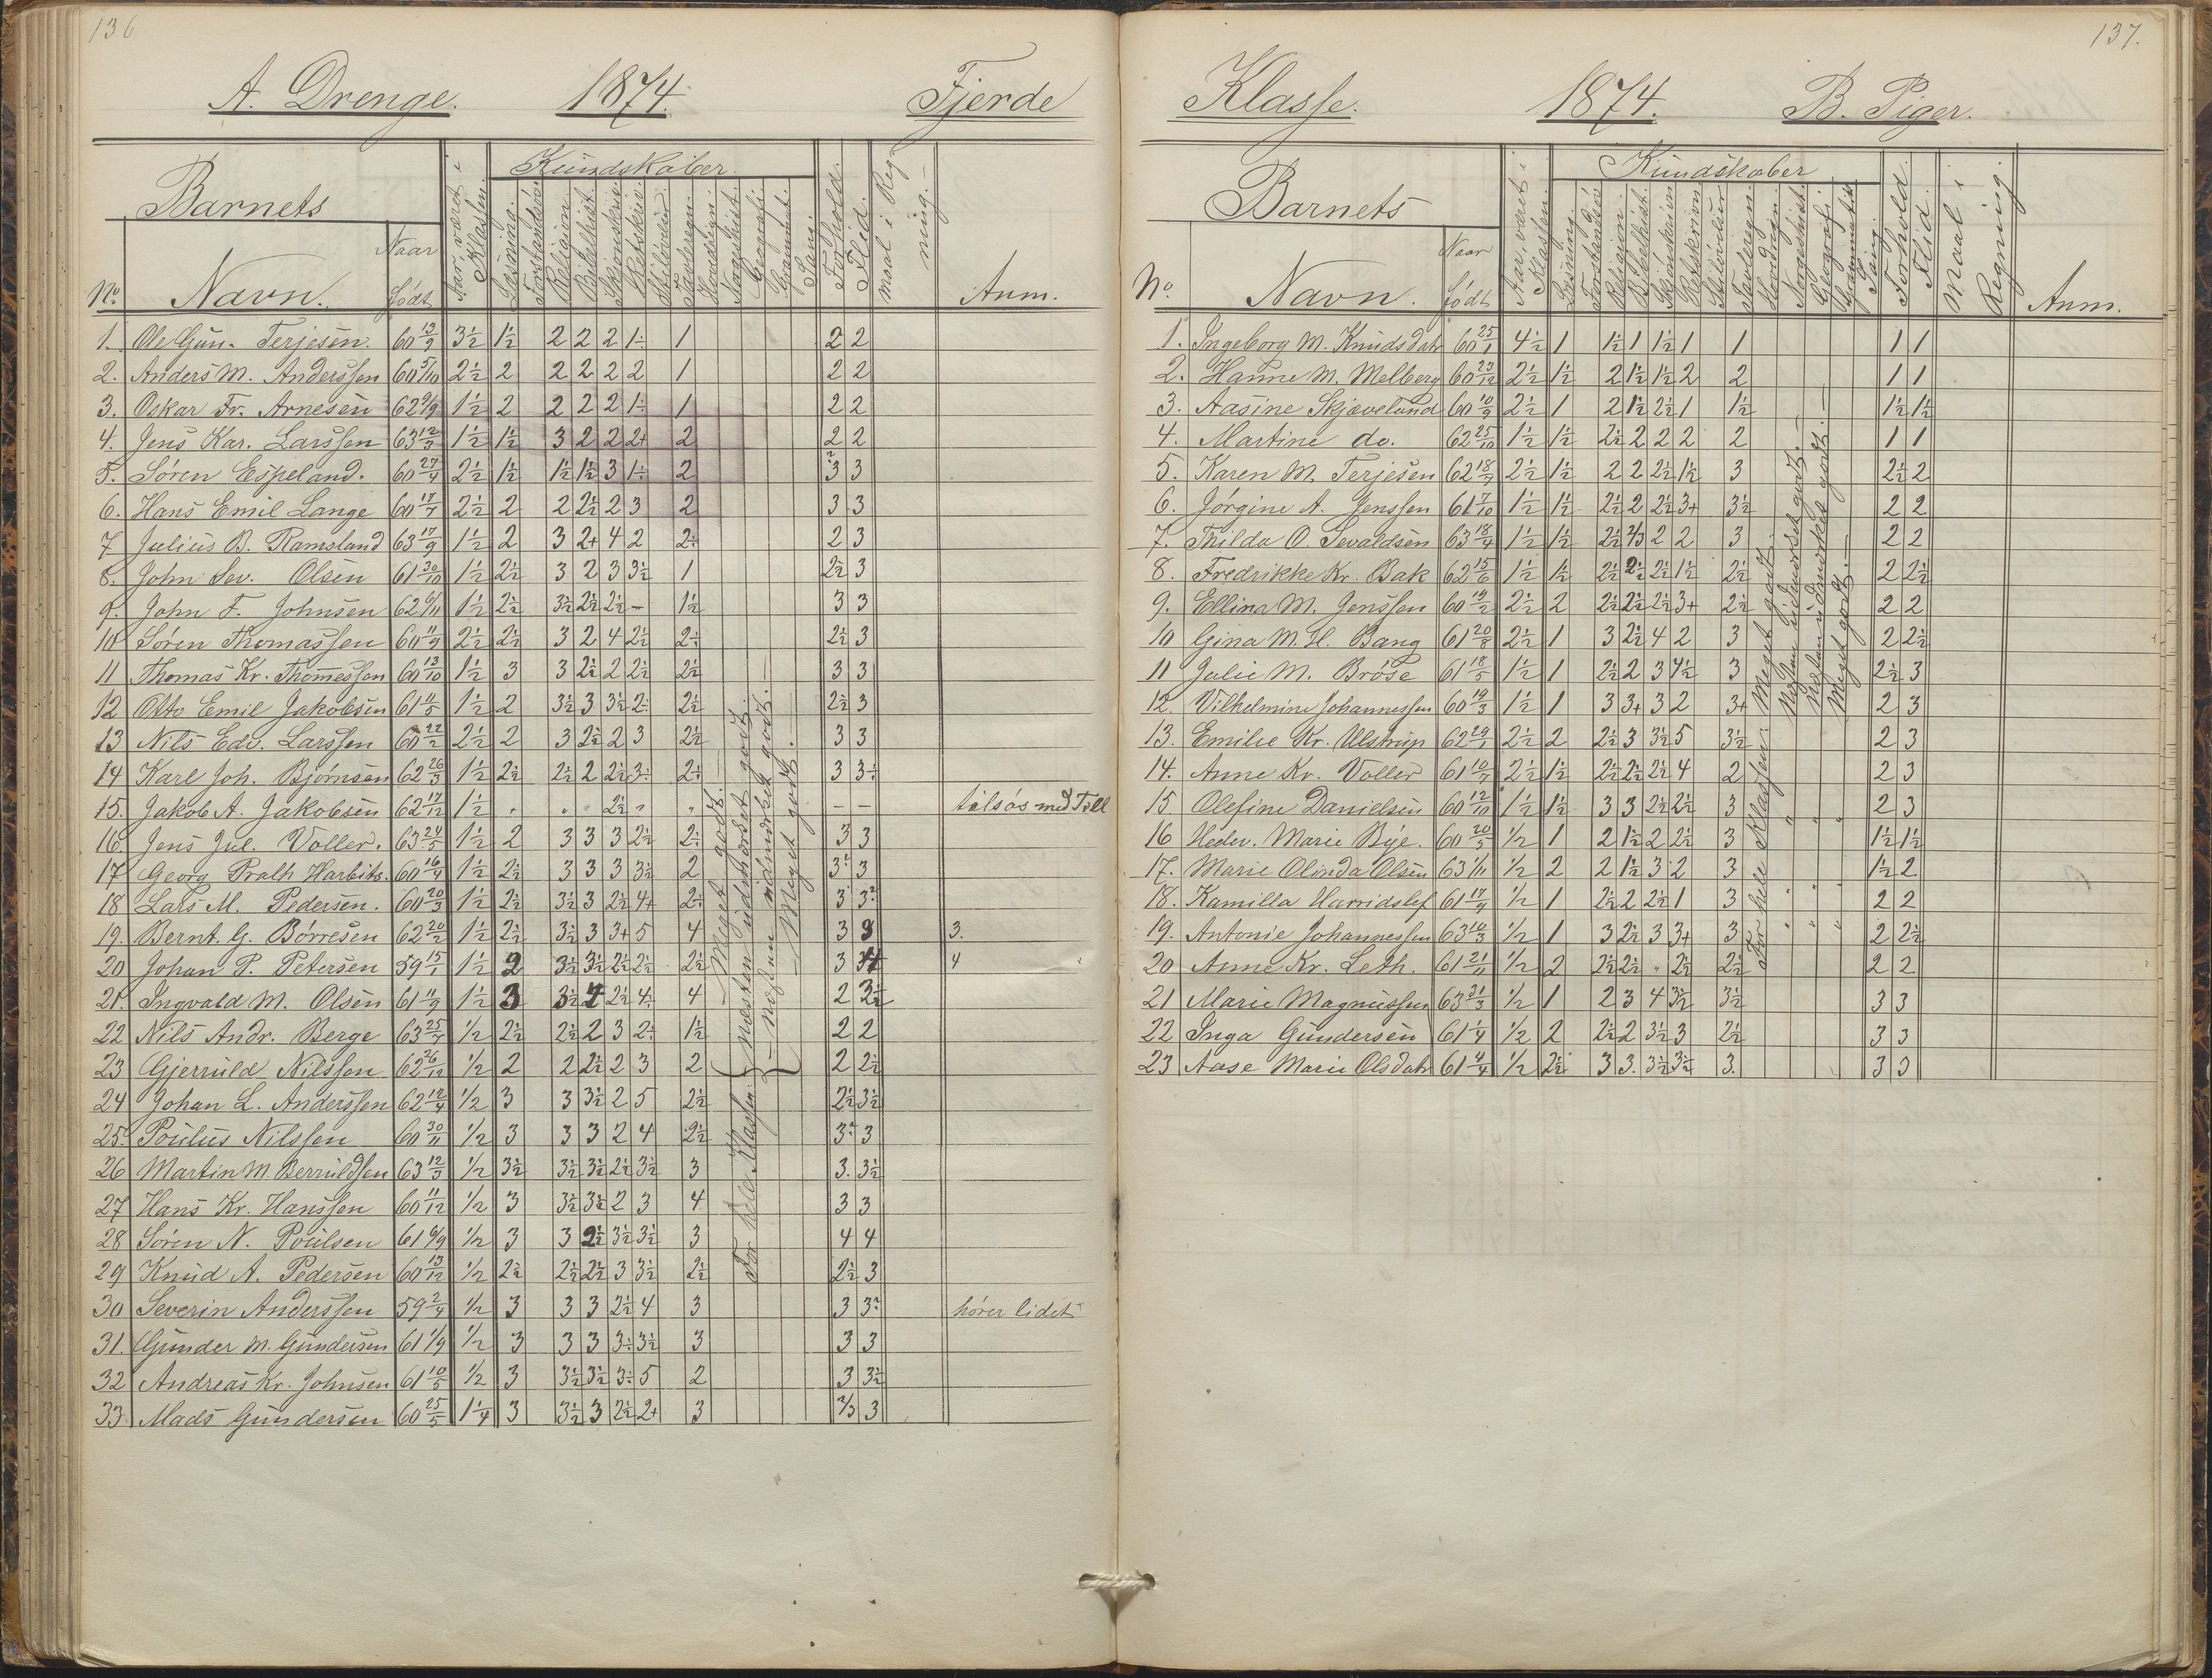 136
A. Drenge. 1874. Fjerde
Barnets Aar været i Klassen. Kundskaber. Forhold. Flid. Maal i Regning.
No. Navn. Naar født Læsning. Forstandsø. Religion Bibelhist. Skjønskriv. Retskriv. Stiløvelser. Tavleregn. Hovedregn. Norgeshist. Geografi. Grammat. Sang. Anm.
1. Ole Gun. Terjesen. 60 13/9 3½ 1½ 2 2 2 1÷ 1 2 2
2. Anders M. Anderssen 60 5/10 2½ 2 2 2 2 2 1 2 2
3. Oskar Fr. Arnesen 62 9/9 1½ 2 2 2 2 1÷ 1 2 2
4. Jens Kar. Larssen 63 12/3 1½ 1½ 3 2 2 2+ 2 2 2
5. Søren Espeland. 60 27/4 2½ 1½ 1½ 1½ 3 1÷ 2 3 3
6. Hans Emil Lange 60 17/7 2½ 2 2 2½ 2 3 2 3 3
7 Julius B. Ramsland 63 17/9 1½ 2 3 2+ 4 2 2÷ 2 3
8. John Sev. Olsen 61 30/10 1½ 2½ 3 2 3 3½ 1 2½ 3
9. John F. Johnsen 62 6/11 1½ 2½ 3½ 2½ 2½ – 1½ 3 3
10 Søren Thomassen 60 11/9 2½ 2½ 3 2 4 2½ 2÷ 2½ 3
11 Thomas Kr. Thomessen 60 13/10 1½ 3 3 2½ 2 2½ 2½ 3 3
12 Otto Emil Jakobsen 61 11/5 1½ 2 3½ 3 3½ 2÷ 2½ 2½ 3
13 Nils Edv. Larssen 60 22/2 2½ 2 3 2½ 2 3 2½ 3 3
14 Karl Joh. Bjørnsen 62 26/3 1½ 2½ 2½ 2 2½ 3÷ 2÷ 3 3÷
15. Jakob A. Jakobsen 62 17/12 1½ " " 2½ " " – – tilsøs med Till
16. Jens Jul. Voller. 63 24/5 1½ 2 3 3 3 2½ 2÷ 3 3
17 Georg Pralh Harbits. 60 16/4 1½ 2½ 3 3 3 3½ 2 3÷ 3
18 Lars M. Pedersen. 60 20/3 1½ 2½ 3½ 3 2½ 4+ 2÷ 3 3÷
19. Bernt. G. Børresen 62 20/2 1½ 2½ 3½ 3 3+ 5 4 3 3 3.
20 Johan P. Petersen 59 15/1 1½ 2 3½ 3½ 2½ 2½ 2½ 3 4 4
21. Ingvald M. Olsen 61 11/9 1½ 3 3½ 4 2½ 4÷ 4 2 3½
22 Nils Andr. Berge 63 25/7 1/2 2½ 2½ 2 3 2÷ 1½ 2 2
23 Gjerruld Nilssen 62 26/12 1/2 2 2 2½ 2 3 2 2 2½
24 Johan L. Anderssen 62 12/4 1/2 3 3 3½ 2 5 2½ 2½ 3½
25. Poulus Nilssen 60 30/11 1/2 3 3 3 2 4 2½ 3÷ 3
26 Martin M. Berruldsen 63 12/3 1/2 3½ 3½ 3½ 2½ 3½ 3 3. 3½
27 Hans Kr. Hanssen 60 11/12 1/2 3 3½ 3½ 2 3 4 3 3
28 Søren N. Poulsen 61 6/9 1/2 3 3 2½ 3½ 3½ 3 4 4
29 Knud A. Pedersen 60 13/12 1/2 2½ 2½ 2½ 3 3½ 2½ 2½ 3
30 Severin Anderssen 59 2/4 1/2 3 3 3 2½ 4 3 3 3÷ hører lidet
31. Gunder M. Gundersen 61 1/9 1/2 3 3 3 3÷ 3½ 3 3 3
32 Andreas Kr. Johnsen 61 10/5 1/2 3 3½ 3½ 3÷ 5 2 3 3½
33 Mads Gundersen 60 25/5 1¼ 3 3½ 3 2½ 2+ 3 2/3 3
For hele Klassen: Meget godt.
næsten udmærket godt.
Meget godt.
137.
Klasse. 1874. B. Piger.
Barnets Aar været i Klassen. Kundskaber Forhold. Flid. Maal i Regning.
No. Navn. Naar født Læsning. Forstandsø Religion. Bibelhist. Skjønskriv Retskrivn Stiløvelser Tavleregn. Hovedregn. Norgeshist. Geografi. Grammatik Sang. Anm.
1. Ingeborg M. Knudsdatr 60 25/1 4½ 1 1½ 1 1½ 1 1 1 1
2. Hanne M. Melberg 60 23/12 2½ 1½ 2 1½ 1½ 2 2 1 1
3. Aasine Skjæveland 60 10/9 2½ 1 2 1½ 2½ 1 1½ 1½ 1½
4. Martine do. 62 25/10 1½ 1½ 2½ 2 2 2 2 1 1
5. Karen M. Terjesen 62 18/7 2½ 1½ 2 2 2½ 1½ 3 2½ 2
6. Jørgine A. Jenssen 61 7/10 1½ 1½ 2½ 2 2½ 3+ 3½ 2 2
7. Thilda O. Sevaldsen 63 18/4 1½ 1½ 2½ 2/3 2 2 3 2 2
8. Fredrikke Kr. Bak 62 15/6 1½ 1½ 2½ 2½ 2½ 1½ 2½ 2 2½
9. Ellina M. Jenssen 60 19/2 2½ 2 2½ 2½ 2½ 3+ 2½ 2 2
10 Gina M. H. Bang 61 20/8 2½ 1 3 2½ 4 2 3 2 2½
11 Julie M. Brøse 61 18/5 1½ 1 2½ 2 3 4½ 3 2½ 3
12. Vilhelmine Johannessen 60 19/3 1½ 1 3 3+ 3 2 3+ 2 3
13. Emilie Kr. Ulstrup 62 29/1 2½ 2 2½ 3 3½ 5 3½ 2 3
14. Anne Kr. Voller 61 10/7 2½ 1½ 2½ 2½ 2½ 4 2 2 3
15 Olefine Danielsen 60 12/10 1½ 1½ 3 3 2½ 2½ 3 2 3
16 Hedev. Marie Bye. 60 20/5 1/2 1 2 1½ 2 2½ 3 1½ 1½
17. Marie Olinda Olsen 63 1/11 1/2 2 2 1½ 3 2 3 1½ 2
18. Kamilla Harridslef 61 17/9 1/2 1 2½ 2 2½ 1 3 2 2
19. Antonie Johannessen 63 10/3 1/2 1 3 2½ 3 3+ 3 2 2½
20 Anne Kr. Leth. 61 21/11 1/2 2 2½ 2½ " 2½ 2½ 2 2
21 Marie Magnussen 63 31/3 1/2 1 2 3 4 3½ 3½ 3 3
22 Inga Gundersen 61 1/4 1/2 2 2½ 2 3½ 3 2½ 3 3
23 Aase Marie Olsdatr 61 4/4 1/2 2½ 3 3. 3½ 3½ 3. 3 3
For hele Klassen: Meget godt.
Næsten udmærket godt.
Næsten udmærket godt.
Meget godt.